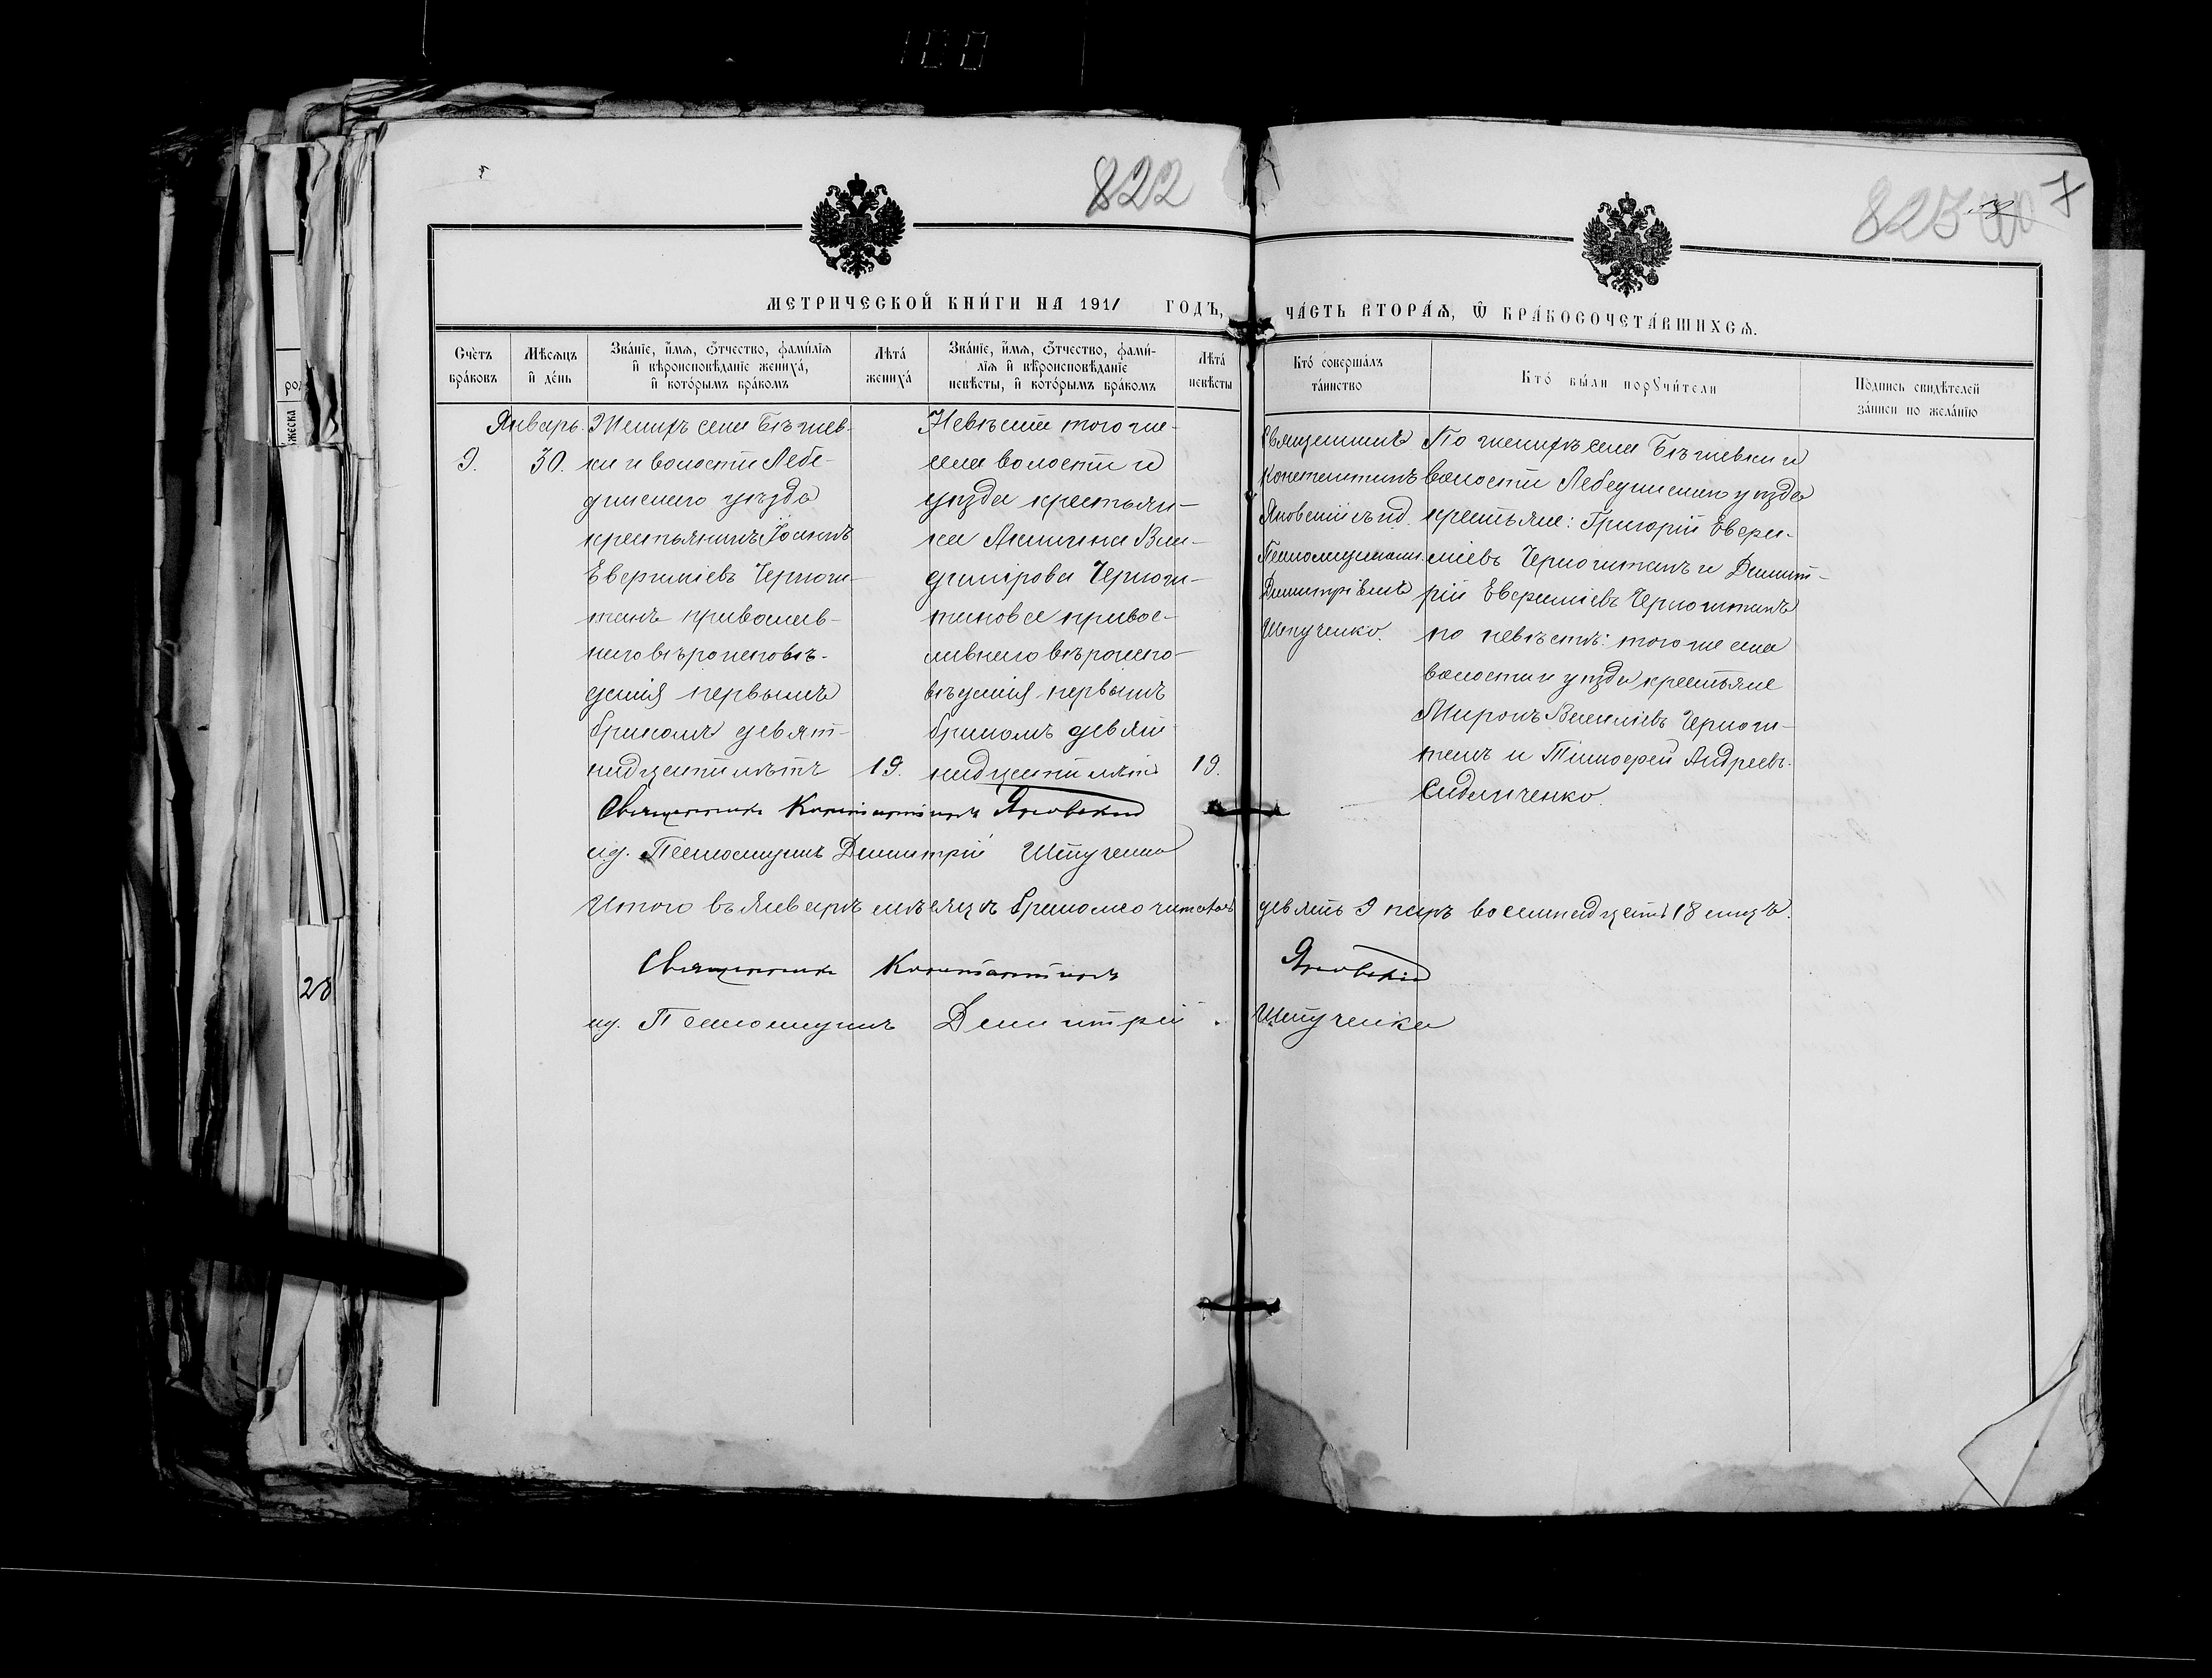 100
822
823
7
МЕТРИЧЕСКОЙ КНИ́ГИ НА 1911 ГОДЪ,
ЧА́СТЬ ВТОРА́Ѧ, Ѿ БРА́КОСОЧЕТА́ВШИХСѦ.
Сче́тъ бра́ковъ
Мѣ́сѧцъ и҆ де́нь
Зва́нїе, и҆́мѧ, ѻ҆́тчество, фами́лїѧ и҆ вѣроисповѣ́данїе жениха́, и҆ кото́рымъ бра́комъ
Лѣ́та жениха́
Зва́нїе, и҆́мѧ, ѻ҆́тчество, фами́лїѧ и҆ вѣроисповѣ́данїе невѣ́сты, и҆ кото́рымъ бра́комъ
Лѣ́та невѣ́сты
Кто̀ соверша́лъ та́инство
Кто̀ бы́ли порꙋчи́тели
Подпись свидѣ́телей за́писи по жела́нїю
Январь.
9.
30.
Женихъ села Бѣжев-
ки и волости Лебе-
динскаго уѣзда
крестьянинъ Іоаннъ
Евфиміевъ Черногш-
танъ православ-
наго вѣроисповѣ-
данія первымъ
бракомъ девят-
надцати лѣтъ
19.
Невѣста того же
села волости и
уѣзда крестьян-
ка Акилина Вла-
димірова Черногш-
танова правос-
лавнаго вѣроиспо-
вѣданія первымъ
бракомъ девят-
надцати лѣтъ
19.
Священникъ
Константинъ
Яновскій съ и.д.
Псаломщикомъ
Димитріемъ
Шпученко.
По женихѣ села Бѣжевки и
волости Лебединскаго уѣзда
крестьяне: Григорій Евфи-
міевъ Черногштанъ и Димит-
рій Евфиміевъ Черногштанъ
по невѣстѣ: того же села
волости и уѣзда крестьяне
Миронъ Василіевъ Черногш-
танъ и Тимофей Андреевъ
Сидельченко.
Священникъ Константинъ Яновскій
ид. Псаломщикъ Димитрій Шпученко
Итого въ Январѣ мѣсяцѣ бракомъ сочеталось девять 9 паръ восемнадцать 18 лицъ.
Священникъ Константинъ Яновскій
ид. Псаломщикъ Димитрій Шпученко
28